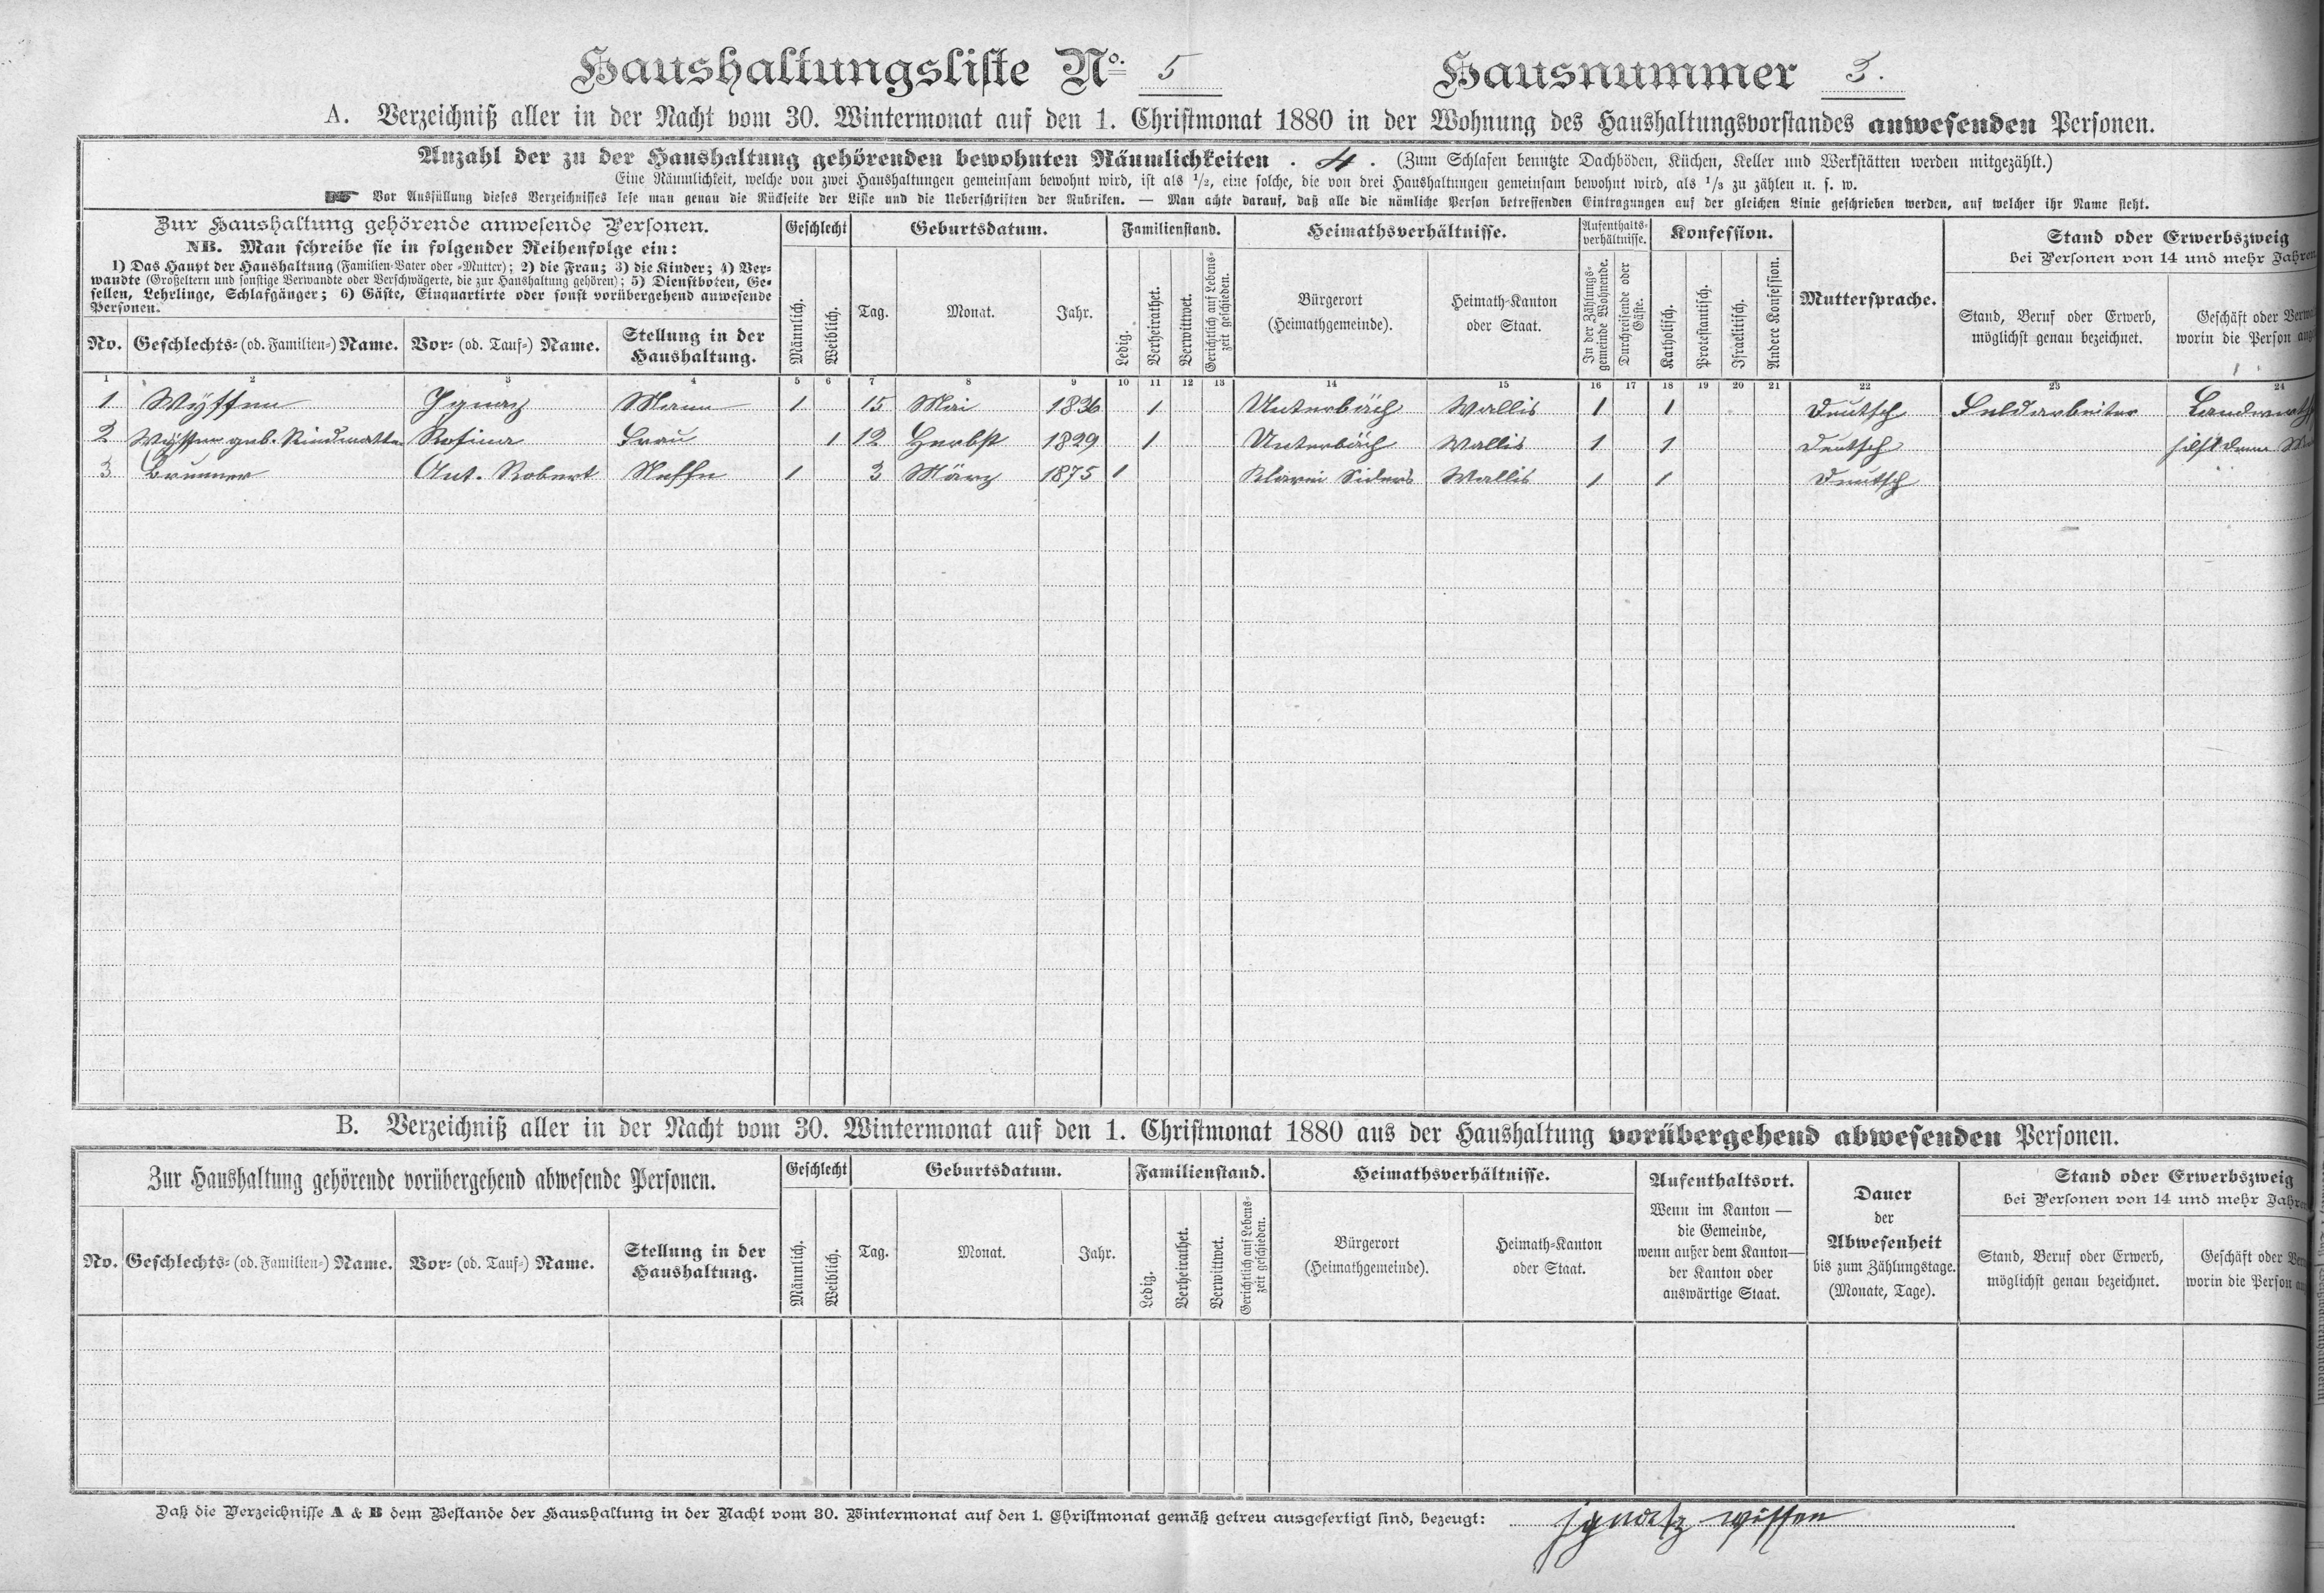 Haushaltungsliste No. 5 Hausnummer 3.
A. Verzeichniß aller in der Nacht vom 30. Wintermonat auf den 1. Christmonat 1880 in der Wohnung des Haushaltungsvorstandes anwesenden Personen.
Anzahl der zu der Haushaltung gehörenden bewohnten Räumlichkeiten . 4 . (Zum Schlafen benutzte Dachböden, Küchen, Keller und Werkstätten werden mitgezählt.)
Eine Räumlichkeit, welche von zwei Haushaltungen gemeinsam bewohnt wird, ist als 1/2, eine solche, die von drei Haushaltungen gemeinsam bewohnt wird, als 1/3 zu zählen u. s. w.
Vor Ausfüllung dieses Verzeichnisses lese man genau die Rückseite der Liste und die Ueberschriften der Rubriken. — Man achte darauf, daß alle die nämliche Person betreffenden Eintragungen auf der gleichen Linie geschrieben werden, auf welcher ihr Name steht.
Zur Haushaltung gehörende anwesende Personen.
NB. Man schreibe sie in folgender Reihenfolge ein:
1) Das Haupt der Haushaltung (Familien-Vater oder -Mutter); 2) die Frau; 3) die Kinder; 4) Ver-
wandte (Großeltern und sonstige Verwandte oder Verschwägerte, die zur Haushaltung gehören); 5) Dienstboten, Ge-
sellen, Lehrlinge, Schlafgänger; 6) Gäste, Einquartirte oder sonst vorübergehend anwesende
Personen.
No. Geschlechts- (od. Familien-) Name. Vor- (od. Tauf-) Name. Stellung in der
Haushaltung.
Geschlecht
Männlich. Weiblich.
Geburtsdatum.
Tag. Monat. Jahr.
Familienstand.
Ledig. Verheirathet. Verwittwet. Gerichtlich auf Lebens-
zeit geschieden.
Heimathsverhältnisse.
Bürgerort
(Heimathgemeinde).
Heimath-Kanton
oder Staat.
Aufenthalts-
verhältnisse.
In der Zählungs-
gemeinde Wohnende.
Durchreisende oder
Gäste.
Konfession.
Katholisch. Protestantisch. Israelitisch. Andere Konfession.
Muttersprache.
Stand oder Erwerbszweig
bei Personen von 14 und mehr Jahren
Stand, Beruf oder Erwerb,
möglichst genau bezeichnet.
Geschäft oder
worin die Person
1 2 3 4 5 6 7 8 9 10 11 12 13 14 15 16 17 18 19 20 21 22 23 24
1 Wyssen Ignaz Mann 1 15 Mai 1836 1 Unterbäch Wallis 1 1 Deutsch Feldarbeiter
2 Wyssen geb. Rosina Frau 1 12 Herbst 1829 1 Unterbäch Wallis 1 1 Deutsch hilft dem
3 Brunner Ant. Robert Neffe 1 3 März 1875 1 Siders Wallis 1 1 Deutsch
B. Verzeichniß aller in der Nacht vom 30. Wintermonat auf den 1. Christmonat 1880 aus der Haushaltung vorübergehend abwesenden Personen.
Zur Haushaltung gehörende vorübergehend abwesende Personen.
No. Geschlechts- (od. Familien-) Name. Vor- (od. Tauf-) Name. Stellung in der
Haushaltung.
Geschlecht
Männlich. Weiblich.
Geburtsdatum.
Tag. Monat. Jahr.
Familienstand.
Ledig. Verheirathet. Verwittwet. Gerichtlich auf Lebens-
zeit geschieden.
Heimathsverhältnisse.
Bürgerort
(Heimathgemeinde).
Heimath-Kanton
oder Staat.
Aufenthaltsort.
Wenn im Kanton —
die Gemeinde,
wenn außer dem Kanton—
der Kanton oder
auswärtige Staat.
Dauer
der
Abwesenheit
bis zum Zählungstage.
(Monate, Tage).
Stand oder Erwerbszweig
bei Personen von 14 und mehr Jahren
Stand, Beruf oder Erwerb,
möglichst genau bezeichnet.
Geschäft oder
worin die Person
Daß die Verzeichnisse A & B dem Bestande der Haushaltung in der Nacht vom 30. Wintermonat auf den 1. Christmonat gemäß getreu ausgefertigt sind, bezeugt: ignatz wissen